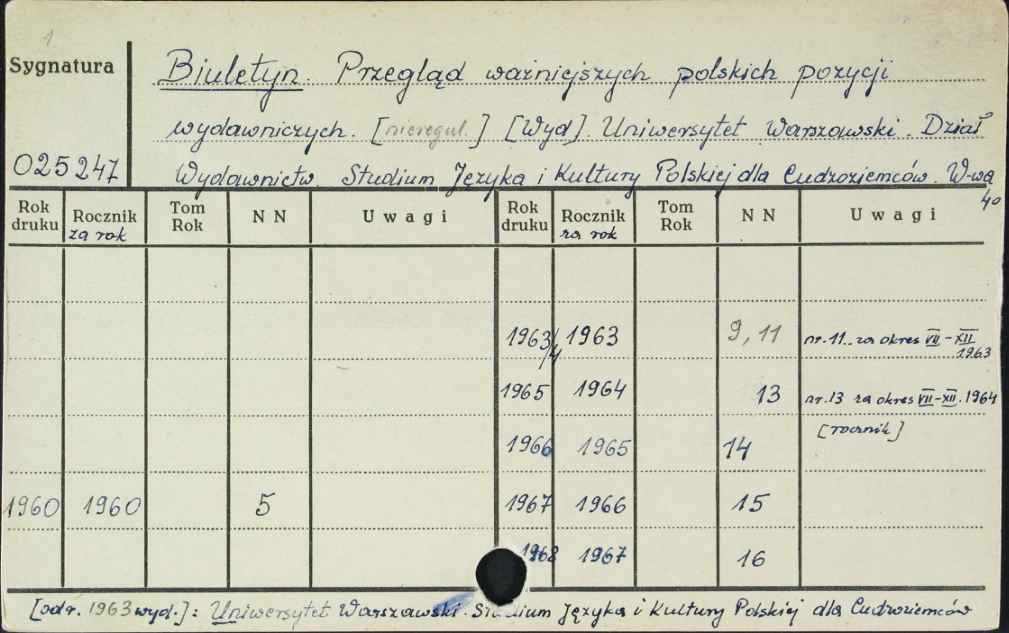 1
Sygnatura
Biuletyn. Przegląd ważniejszych polskich pozycji
wydawniczych. [nieregul.] [Wyd]. Uniwersytet Warszawski. Dział
025247
Wydawnictw. Studium Języka i Kultury Polskiej dla Cudzoziemców. W-wa
40
Rok druku Rocznik za rok Tom Rok N N Uwagi Rok druku Rocznik za rok Tom Rok N N Uwagi
1963/4 1963 9, 11 nr. 11.. za okres VII-XII 1963
1965 1964 13 nr. 13 za okres VII-XII. 1964
1966 1965 14 [rocznik]
1960 1960 5 1967 1966 15
1968 1967 16
[od r. 1963 wyd.]: Uniwersytet Warszawski. Studium Języka i Kultury Polskiej dla Cudzoziemców